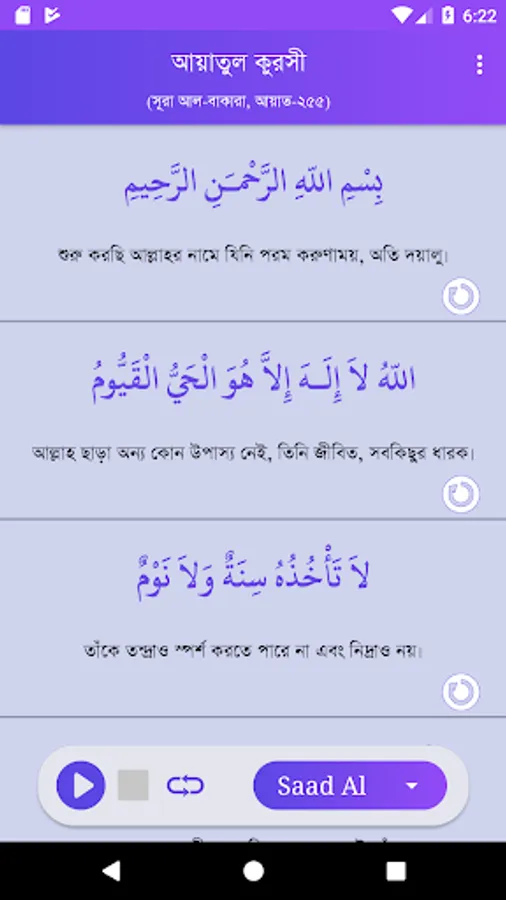 6:22
আয়াতুল কুরসী
(সূরা আল-বাকারা, আয়াত-২৫৫)
بِسْمِ اللّهِ الرَّحْمَـنِ الرَّحِيمِ
শুরু করছি আল্লাহর নামে যিনি পরম করুণাময়, অতি দয়ালু।
اللّهُ لاَ إِلَـهَ إِلاَّ هُوَ الْحَيُّ الْقَيُّومُ
আল্লাহ ছাড়া অন্য কোন উপাস্য নেই, তিনি জীবিত, সবকিছুর ধারক।
لاَ تَأْخُذُهُ سِنَةٌ وَلاَ نَوْمٌ
তাঁকে তন্দ্রাও স্পর্শ করতে পারে না এবং নিদ্রাও নয়।
Saad Al